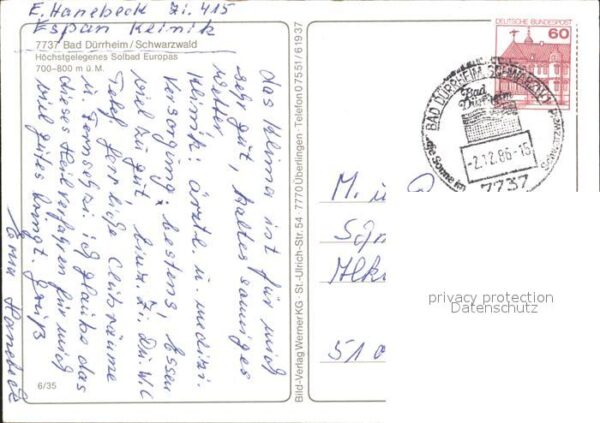 E. Hanebeck Zi. 415
Espan Klinik
7737 Bad Dürrheim/Schwarzwald
Höchstgelegenes Solbad Europas
700–800 m ü. M.
das Klima ist für mich
sehr gut, kaltes sonniges
Wetter
Klinik: ärztl. u. medizi.
Versorgung bestens, Essen
viel zu gut, Zi. Du W.C.
Telef herrliche Clubräume
u. Fernsehzi. ich glaube das
dieses Heilverfahren für mich
viel gutes bringt. Gruß
Hanebeck
6/35
Bild-Verlag Werner KG · St.-Ulrich-Str. 54 · 7770 Überlingen · Telefon 07551/61937
DEUTSCHE BUNDESPOST
60
BAD DÜRRHEIM, SCHWARZW 1
Bad
Dürrheim
die Sonne im
-2.12.86-15
7737
M. u.
510
privacy protection
Datenschutz